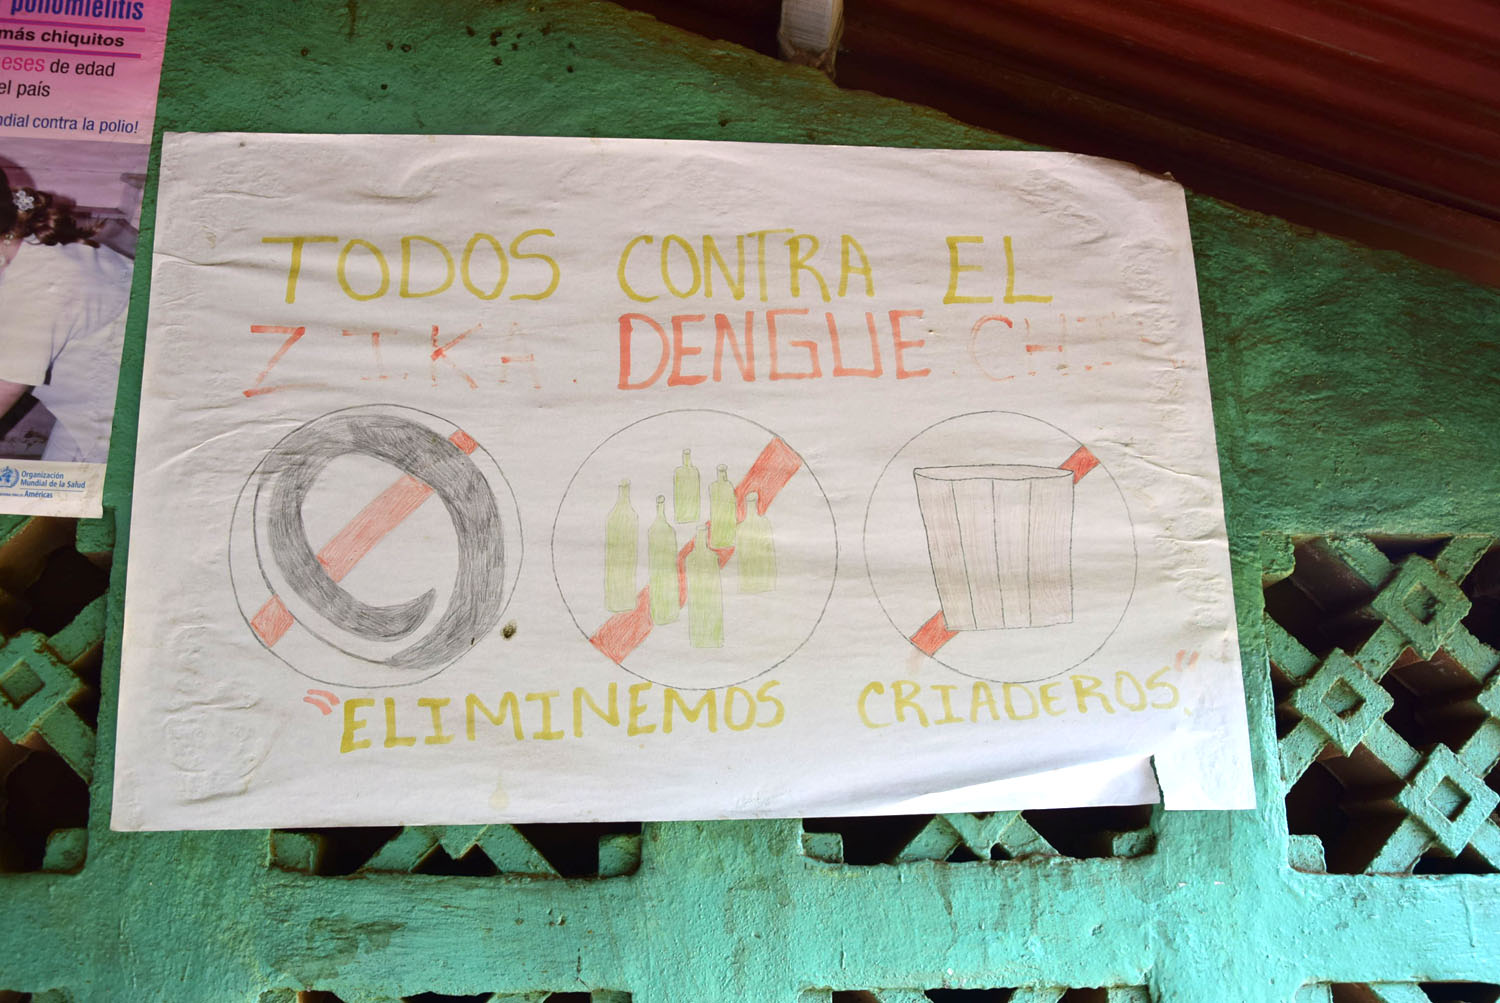 poliomielitis
más chiquitos
eses de edad
el país
ndial contra la polio!
Organización
Mundial de la Salud
Américas
TODOS CONTRA EL
ZIKA. DENGUE CHI
"ELIMINEMOS CRIADEROS".